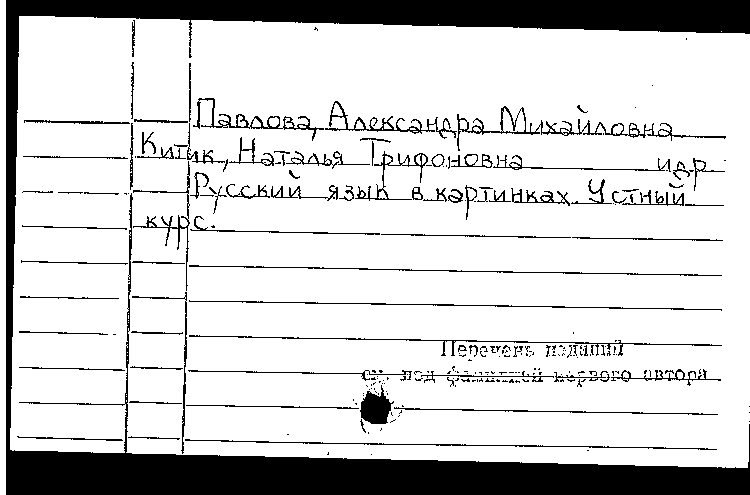 Павлова, Александра Михайловна
Китик, Наталья Трифоновна идр
Русский язык в картинках. Устный
курс.
Перечень изданий
см. под фамилией первого автора